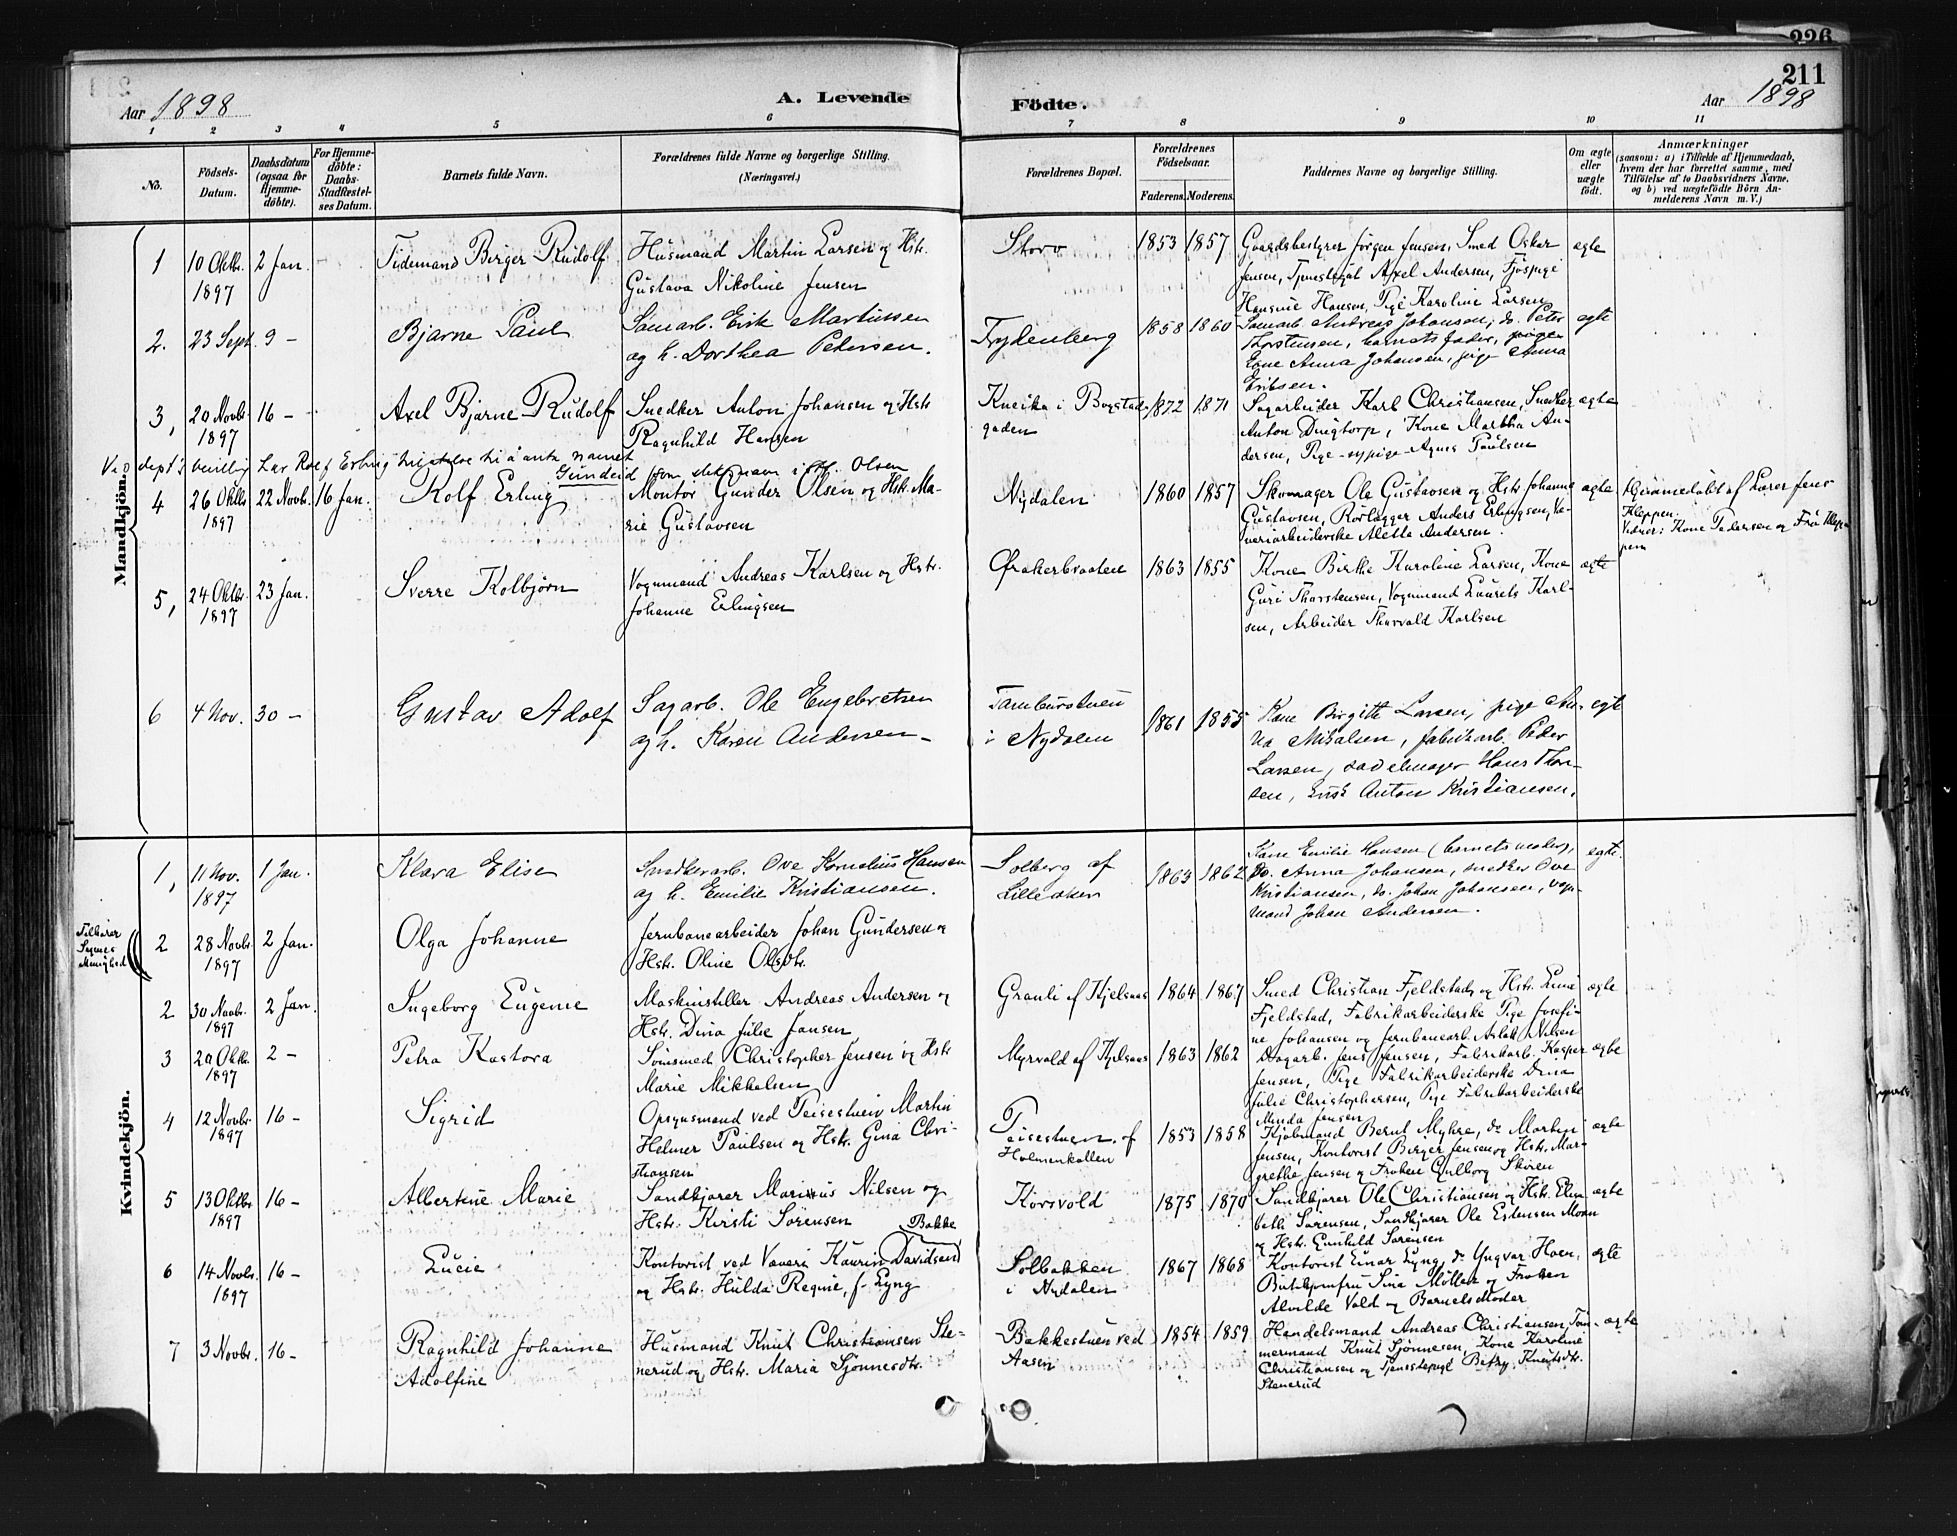 226
211
Aar 1898
A. Levende
Födte.
Aar 1898
1 2 3 4 5 6 7 8 9 10 11
No.
Födsels-
Datum.
Daabsdatum
(ogsaa for
Hjemme-
döbte).
For Hjemme-
döbte:
Daabs-
Stadfæstel-
ses Datum.
Barnets fulde Navn.
Forældrenes fulde Navne og borgerlige Stilling.
(Næringsvei.)
Forældrenes Bopæl.
Forældrenes
Födselsaar.
Faderens. Moderens.
Faddernes Navne og borgerlige Stilling.
Om ægte
eller
uægte
födt.
Anmærkninger
(saasom: a) i Tilfælde af Hjemmedaab,
hvem der har forrettet samme, med
Tilföielse af to Daabsvidners Navne,
og b) ved uægtefödte Börn An-
melderens Navn m. V.)
Mandkjön.
1
10 Oktbr.
1897
2 Jan.
Tidemand Birger Rudolf
Husmand Martin Larsen og Hstr.
Gustava Nikoline Jensen
Storo
1853 1857
Gaardsbestyrer Jörgen Jensen, Smed Oskar
Jensen, Tjenestegut Axel Andersen, Fjöspige
Hansine Hansen, Pige Karoline Larsen
ægte
2.
23 Sept.
9 –
Bjarne Paul
Samarb. Erik Martinsen
og h. Dorthea Pedersen.
Frydenberg
1858 1860
Samarb. Andreas Johansen, do. Peter
Thorstensen, barnets fader,
Kone Anna Johansen, pige Anna
Eriksen.
egte
3,
20 Novbr.
1897
16 –
Axel Bjarne Rudolf
Snedker Anton Johansen og Hstr.
Ragnhild Hansen
Kneika i Bogstad-
gaden
1872 1871
Sagarbeider Karl Christiansen, Snedker
Anton Dingtorp, Kone Martha An-
dersen, Pige-sypige Agnes Paulsen
ægte
Gundeid som slektnavn Olsen
4
26 Oktbr.
1897
22 Novbr.
16 Jan.
Rolf Erling
Montör Gunder Olsen og Hstr. Ma-
rie Gustavsen
Nydalen
1860 1857
Skomager Ole Gustavsen og Hstr. Johanne
Gustavsen, Rörlægger Anders Erlingsen, Væ-
veriarbeiderske Mette Andersen.
ægte
Hjemmedöbt af Lærer Jens
Kleppen.
Vidner: Kone Pedersen og Frö. Klep-
pen
5,
24 Oktbr.
1897
23 Jan.
Sverre Kolbjörn
Vognmand Andreas Karlsen og Hstr.
Johanne Erlingsen
Örakerbraaten
1863 1855
Kone Birthe Karoline Larsen, Kone
Guri Thorstensen, Vognmand Laurits Karl-
sen, Arbeider Thorvald Karlsen
ægte
6
4 Nov.
30 –
Gustav Adolf
Sagarb. Ole Engebretsen
og h. Karen Andersen –
i Nydalen
1861 1855
Kone Birgitte Larsen, pige An-
na Mikalsen, fabrikarb. Peder
Larsen, sadelmager Hans Thor-
sen, Anton Kristiansen.
egte
Kvindekjön.
1,
11 Nov.
1897
1 Jan.
Klara Elise
Snedkerarb. Ove Kornelius Hansen
og h. Emilie Kristiansen.
Solberg af
Lilleaker
1863 1862
Kone Emilie Hansen (barnets moder),
Do. Anna Johansen, snedker Ove
Kristiansen, do. Johan Johansen, vogn-
mand Johan Andersen.
egte
Tilhörer
Sagnes
Menighed
2
28 Novbr.
1897
2 Jan.
Olga Johanne
Jernbanearbeider Johan Gundersen og
Hstr. Oline Olsdtr.
2
30 Novbr.
1897
2 Jan.
Ingeborg Eugenie
Maskinstiller Andreas Andersen og
Hstr. Dina Julie Jansen
Granli af Kjelsaas
1864 1867
Smed Christian Fjeldstad, og Hstr. Lina
Fjeldstad, Fabrikarbeiderske Pige Josefi-
ne Johansen og Jernbanearb. Aslak Nilsen
ægte
3
20 Oktbr.
1897
2 –
Petra Kastora
Sömsmed Christopher Jensen og Hstr.
Marie Mikkelsen
Myrvold af Kjelsaas
1863 1862
Dagarb. Jens Jensen, Fabrikarb. Kasper
Jensen, Pige Fabrikarbeiderske Dina
Julie Christophersen, Pige Fabrikarbeiderske
Minda Jensen
ægte
4
12 Novbr.
1897
16 –
Sigrid
Opsynsmand ved Peisestuen Martin
Helmer Paulsen og Hstr. Gina Chri-
stiansen
Peisestuen af
Holmenkollen
1853 1858
Kjöbmand Bernt Myhre, do Martin
Jensen, Kontorist Birger Jensen og Hstr. Mar-
grethe Jensen og Fröken Gulborg Skören
ægte
5
13 Oktbr.
1897
16 –
Albertine Marie
Sandkjörer Marinus Nilsen og
Hstr. Kirsti Sörensen
Korsvold
1875 1870
Sandkjörer Ole Christiansen og Hstr. Elisa-
beth Sörensen, Sandkjörer Ole Estensen Moan
og Hstr. Gunhild Sörensen
ægte
6
14 Novbr.
1897
16 –
Lucie
Bakke
Kontorist ved Væveri Kaurin Davidsen
og Hstr. Hulda Regine, f. Lyng
Solbakken
i Nydalen
1867 1868
Kontorist Einar Lyng, do Yngvar Hoen,
Butikjomfru Sina Möller og Fröken
Alvilde Vold og Barnets Moder
ægte
7
3 Novbr.
16 –
Ragnhild Johanne
Adolfine
Husmand Knut Christiansen Ste-
nerud og Hstr. Maria Sjönnesdtr.
Bakkestuen ved
Aasen
1854 1859
Handelsmand Andreas Christiansen, Töm-
mermand Knut Sjönnesen, Kone Karoline
Christiansen og Tjenestepige Betzy Knutsdtr.
Stenerud
ægte